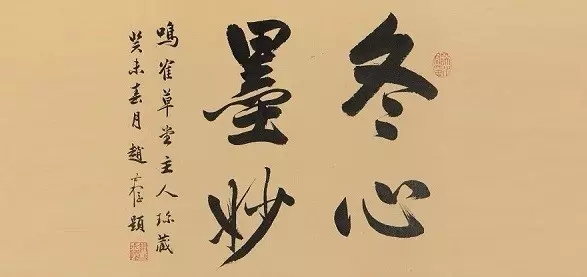 冬心
墨妙
鳴雀草堂主人珍藏
癸未春月趙題